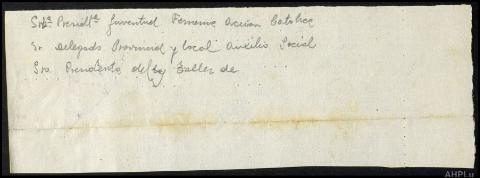 Srta. Presidta Juventud Femenina Acción Catolica
Sr Delegado Provincial y local Auxilio Social
Sra. Presidenta del Taller de
AHPLu